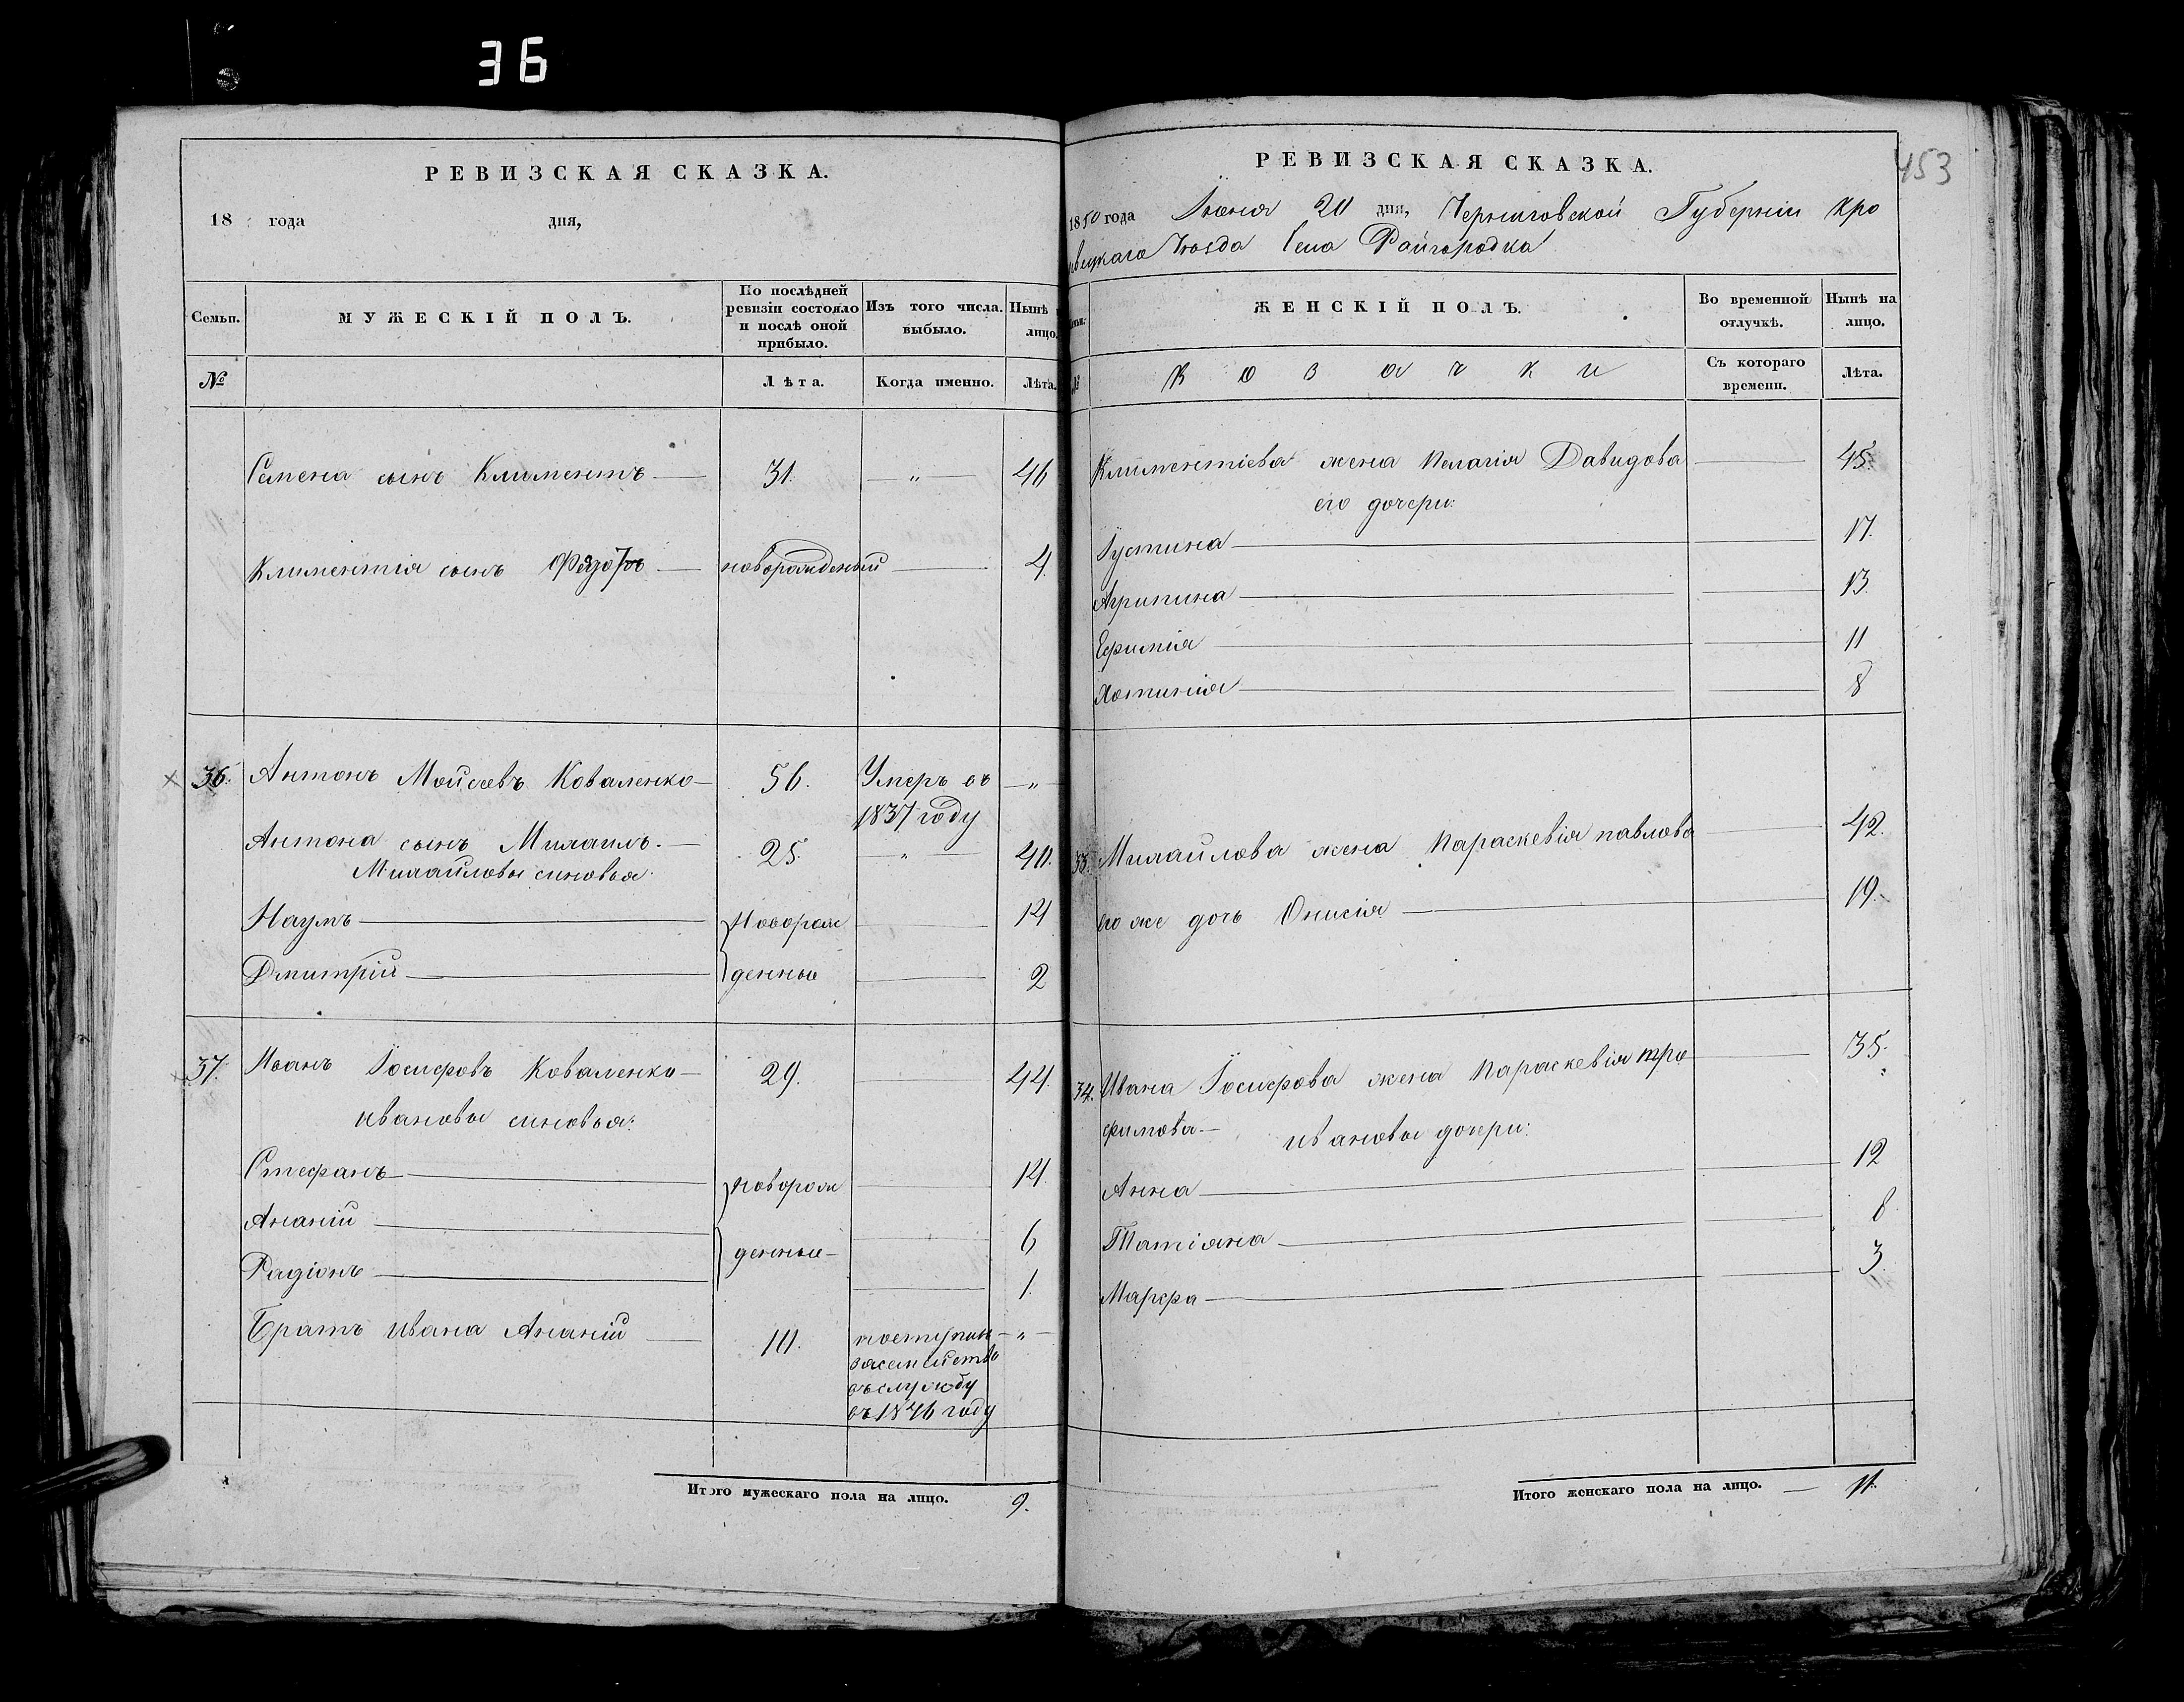 36
РЕВИЗСКАЯ СКАЗКА.
18 года дня,
Семьи.
МУЖЕСКІЙ ПОЛЪ.
По послѣдней ревизіи состояло и послѣ оной прибыло.
Изъ того числа выбыло.
Нынѣ лицо.
№
Лѣта.
Когда именно.
Лѣта.
Семена сынъ Климентъ — 31. — „ — 46
Климентія сынъ Федоръ — новорожденый — 4.
36. Антонъ Мойсеевъ Коваленко — 56. Умеръ въ — „ —
1837 году
Антона сынъ Михаилъ. — 25. — „ — 40.
Михайловы синовья.
Наумъ —Новорож — 14
Дмитрій — денные — 2
37. Иванъ Іосифовъ Коваленко — 29. — 44.
Ивановы синовья:
Стефанъ — новорож — 14.
Ананій — 6
денные —
Радіонъ — 1.
Братъ Ивана Ананій — 10. поступилъ — „ —
за семейство
въ службу
въ 1846 году
Итого мужескаго пола на лицо. 9.
453
РЕВИЗСКАЯ СКАЗКА.
1850 года Іюня 20 дня, Черниговской Губерніи Кро
левецкаго Уезда Села Райгородка
ЖЕНСКІЙ ПОЛЪ.
Во временной отлучкѣ.
Нынѣ на лицо.
№
Козачки
Съ котораго времени.
Лѣта.
Климентіева жена Пелагія Давидова — 45.
его дочери:
Іустина — 17.
Агрипина — 13.
Ефимія — 11
Хотинія — 8
33. Михайлова жена Параскевія Павлова — 42.
его же дочь Онисія — 19.
34. Ивана Іосифова жена Параскевія Тро — 35.
фимова. —
Ивановы дочери:
Анна — 12
Татіяна — 8.
Марфа — 3.
Итого женскаго пола на лицо. — 11.